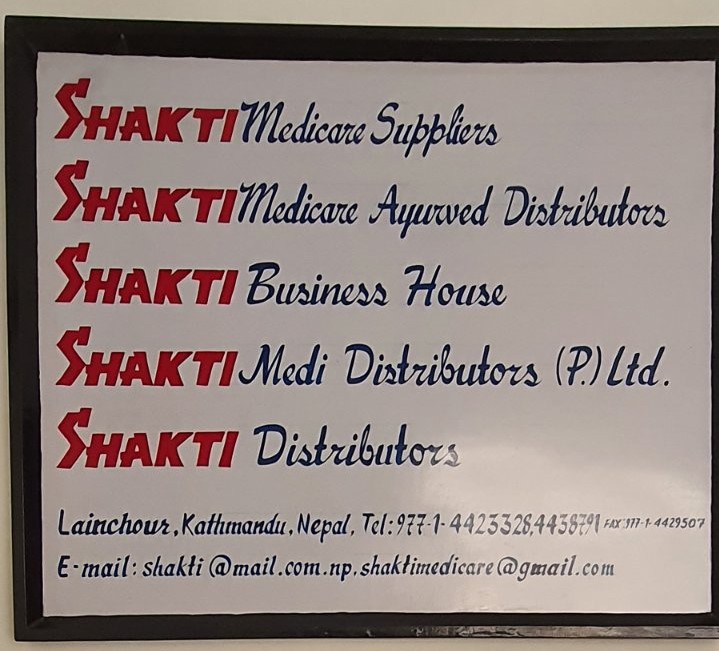 SHAKTI Medicare Suppliers
SHAKTI Medicare Ayurved Distributors
SHAKTI Business House
SHAKTI Medi Distributors (P.) Ltd.
SHAKTI Distributors
Lainchour, Kathmandu, Nepal, Tel: 977-1- 4423328,4438791 FAX: 977-1-4429507
E-mail: shakti @mail.com.np.shaktimedicare@gmail.com